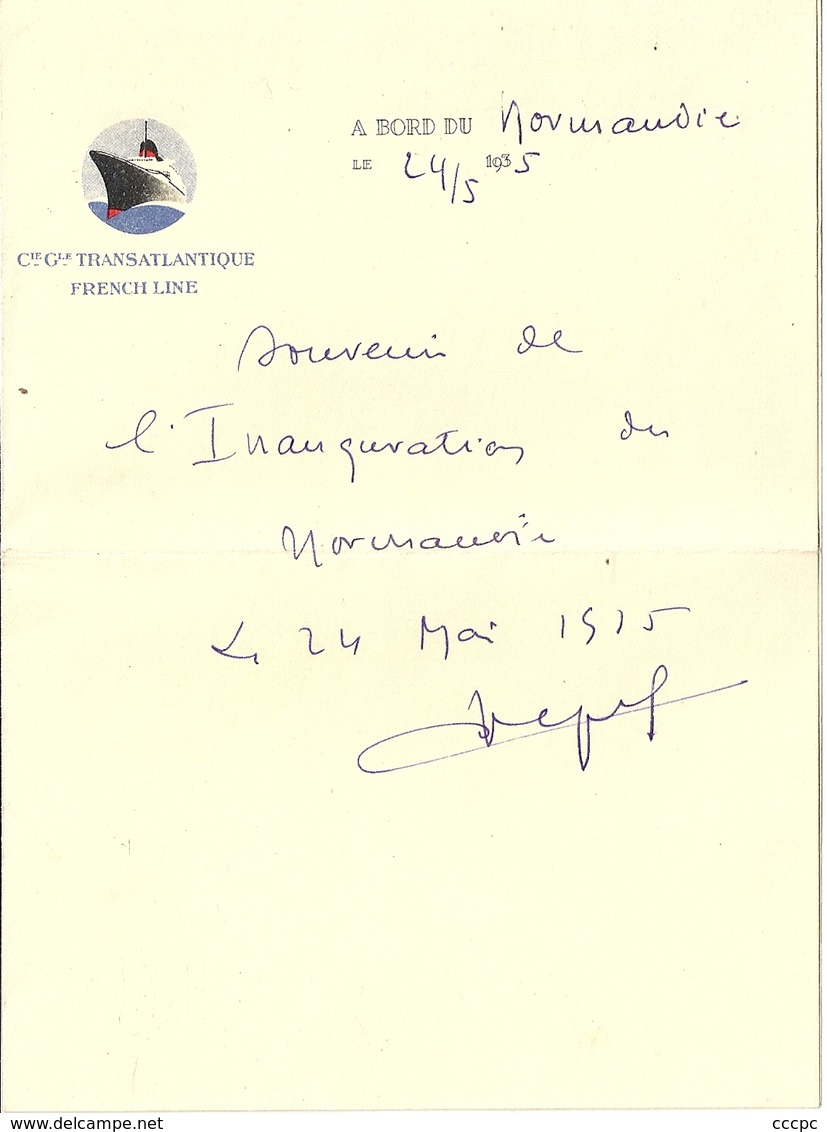 A BORD DU Normandie
LE 24/5 1935
CIE GLE TRANSATLANTIQUE
FRENCH LINE
Souvenir de
l'Inauguration du
Normandie
Le 24 Mai 1935
www.delcampe.net
cccpc